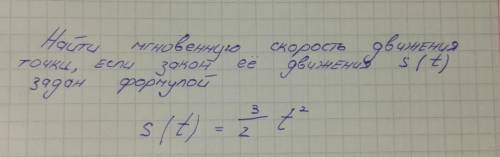 Найти мгновенную скорость движения
точки, если закон её движения s(t)
задан формулой
s(t) = 3/2 t²